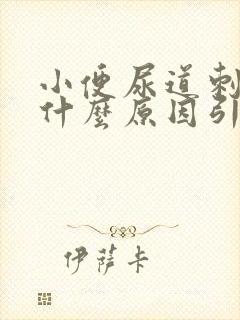 小便尿道刺
什麼原因引
伊薩卡